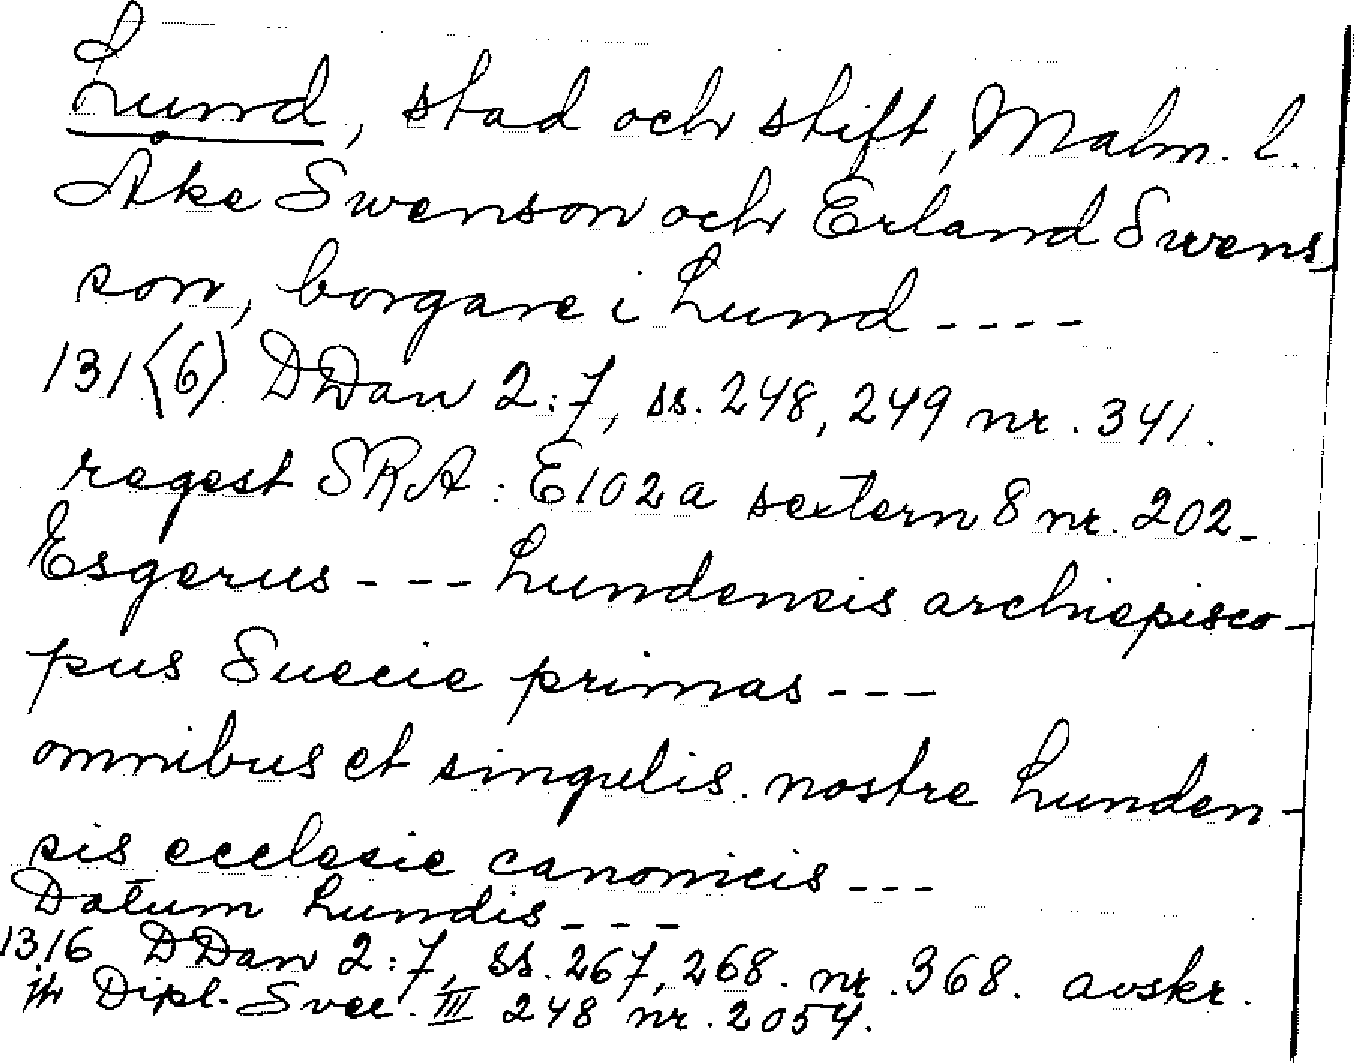 Lund, stad och stift, Malm. l.
Åke Swenson och Erland Swens-
son, borgare i Lund ----
131<6> DDan 2:7, ss. 248, 249 nr. 341.
regest SRA: E102a sextern 8 nr. 202-
Esgerus --- Lundensis archiepisco-
pus Suecie primas ---
omnibus et singulis nostre Lunden-
sis ecclesie canonicis ---
Datum Lundis ---
1316 DDan 2:7, ss. 267, 268. nr. 368. avskr.
jfr Dipl. Svec. III 248 nr. 2054.